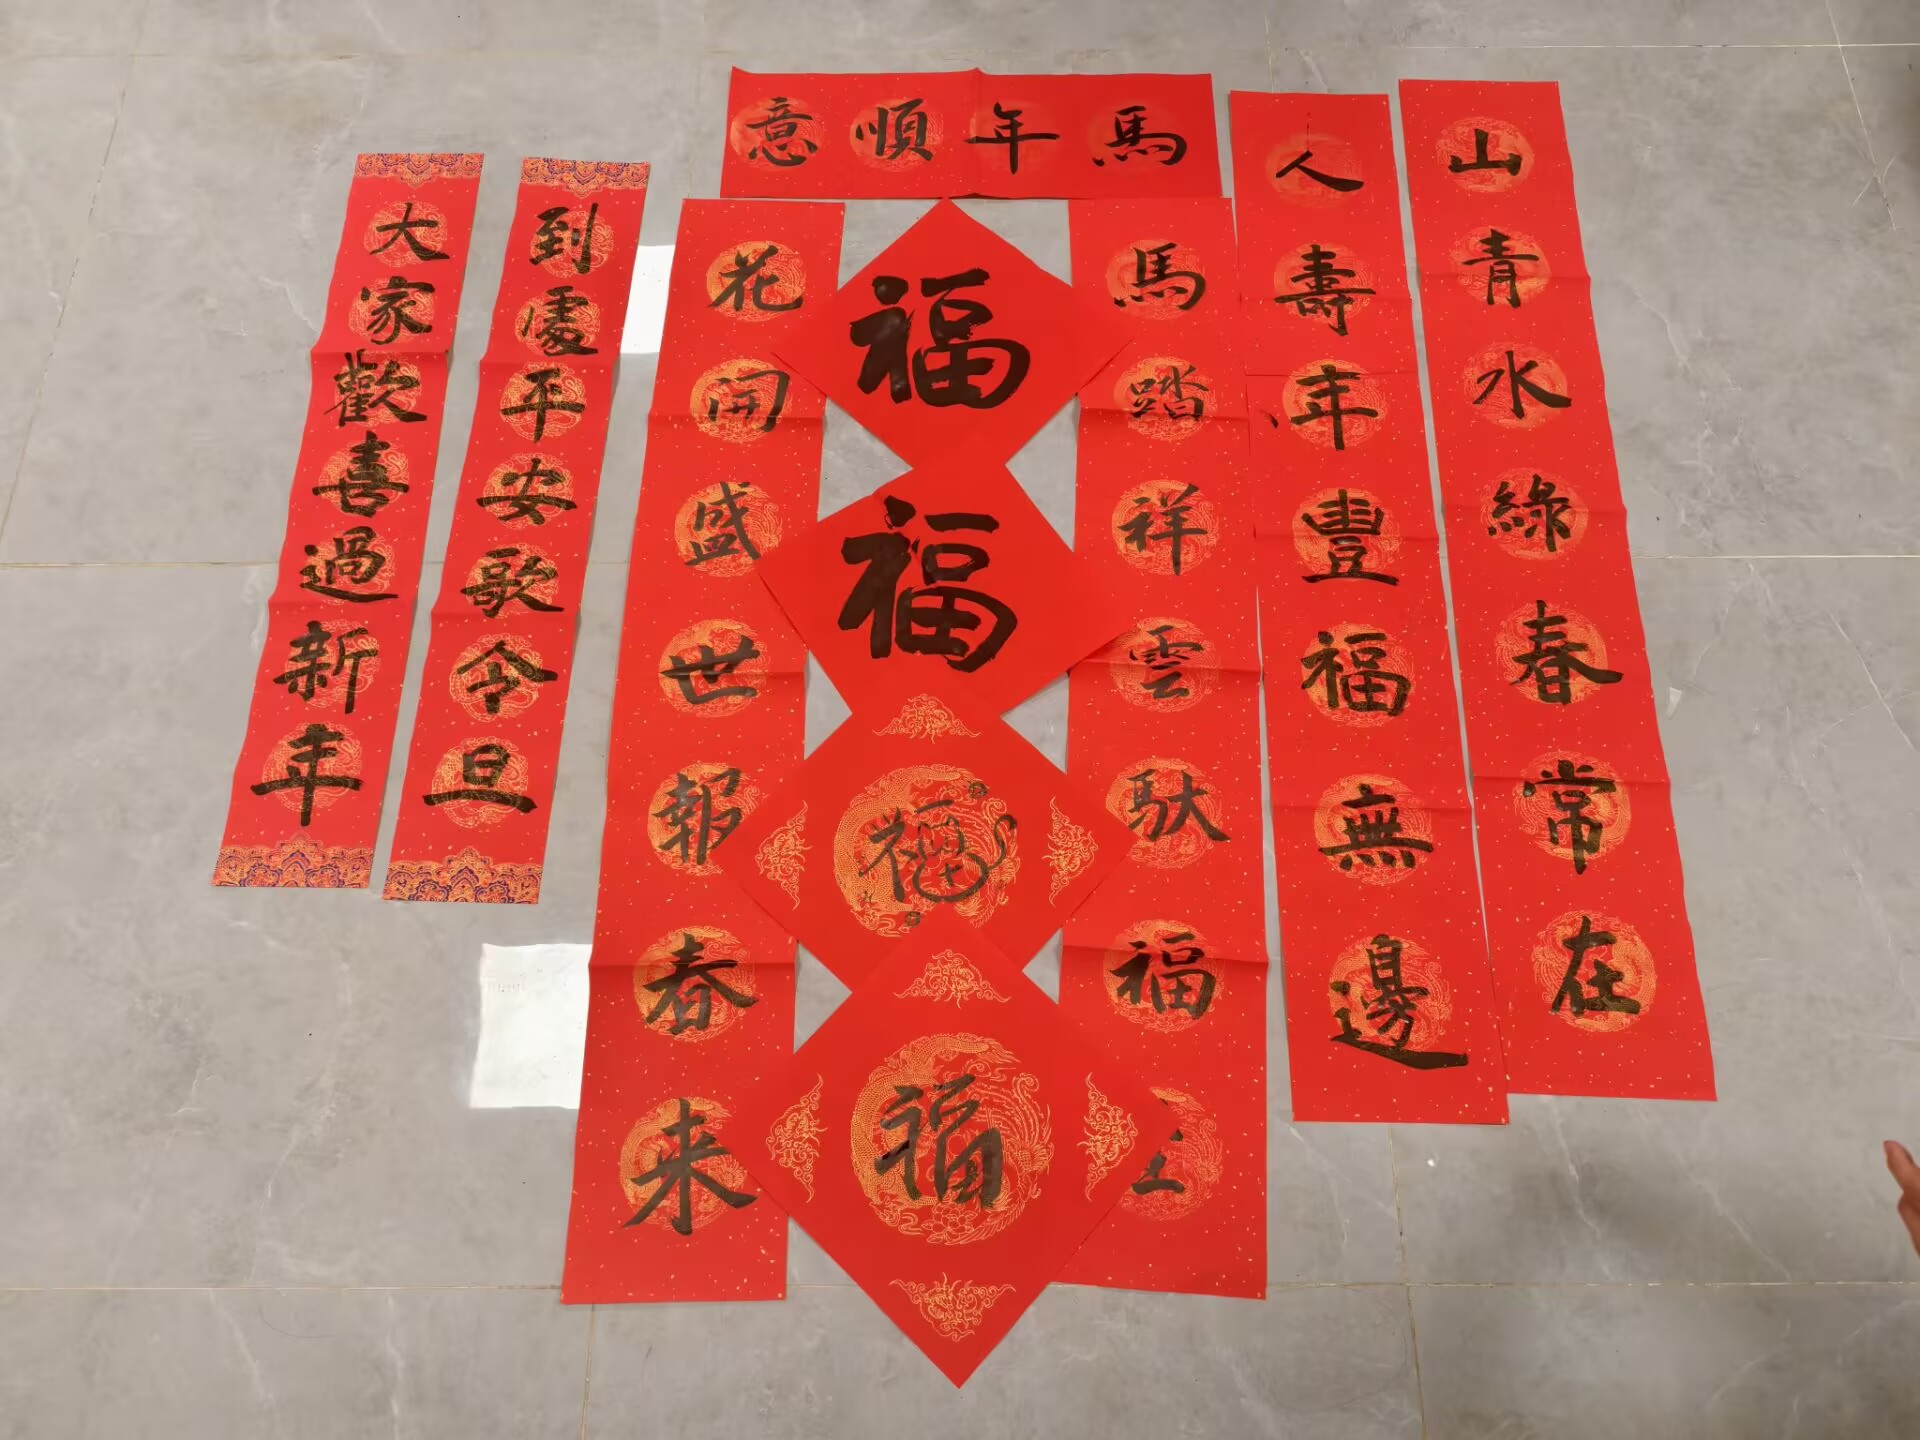 馬年順意
山青水綠春常在
人壽年豐福無邊
馬踏祥雲馱福
福
福
福
福
花開盛世報春来
到處平安歌令旦
大家歡喜過新年